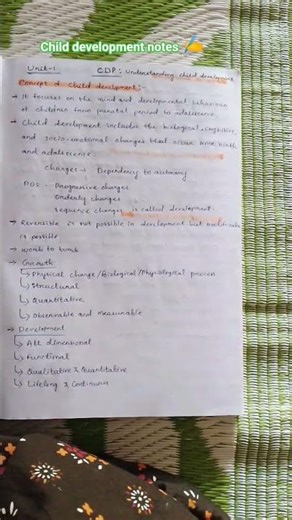 Child development notes ✍
Unit-1 CDP: Understanding child development
Concept of child development:-
→ It focuses on the mind and developmental behaviour
of children from prenatal period to adolescence
→ Child development includes the biological, cognitive
and socio-emotional changes that occur b/w birth
and adolescence
Changes → Dependency to autonomy
POS: Progressive changes
Orderly changes
Sequence changes is called development.
→ Reversible is not possible in development but
is possible
→ womb to tomb
→ Growth
↳ Physical change/Biological/Physiological process
↳ Structural
↳ Quantitative
↳ Observable and Measurable
→ Development
↳ All dimensional
↳ Functional
↳ Qualitative & Quantitative
↳ Lifelong & Continuous